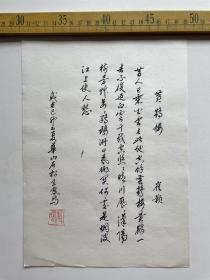 黄鹤楼 崔颢
昔人已乘去此地空余黄鹤楼黄鹤一
去不复返白云千载空悠悠晴川历历汉阳
树芳草萋萋鹦鹉洲日暮乡关何处是烟波
江上使人愁
己卯之夏华山石松